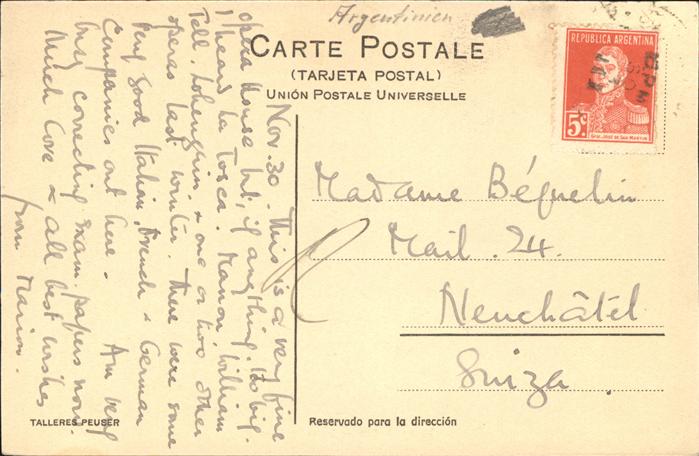 Argentinien
CARTE POSTALE
(TARJETA POSTAL)
UNIÓN POSTALE UNIVERSELLE
REPUBLICA ARGENTINA
5c
Gral. José de San Martín
Nov. 30. This is a very fine
opera House but, if anything, too big.
I heard La Tosca. Manon, William
Tell, Lohengrin, & one or two other
operas last winter. There were some
very good Italian, French & German
Companies out here. Am very
busy correcting exam. papers now.
Much love & all best wishes
from Marion.
Madame Béguelin
Mail. 24.
Neuchâtel
Suiza.
TALLERES PEUSER
Reservado para la dirección